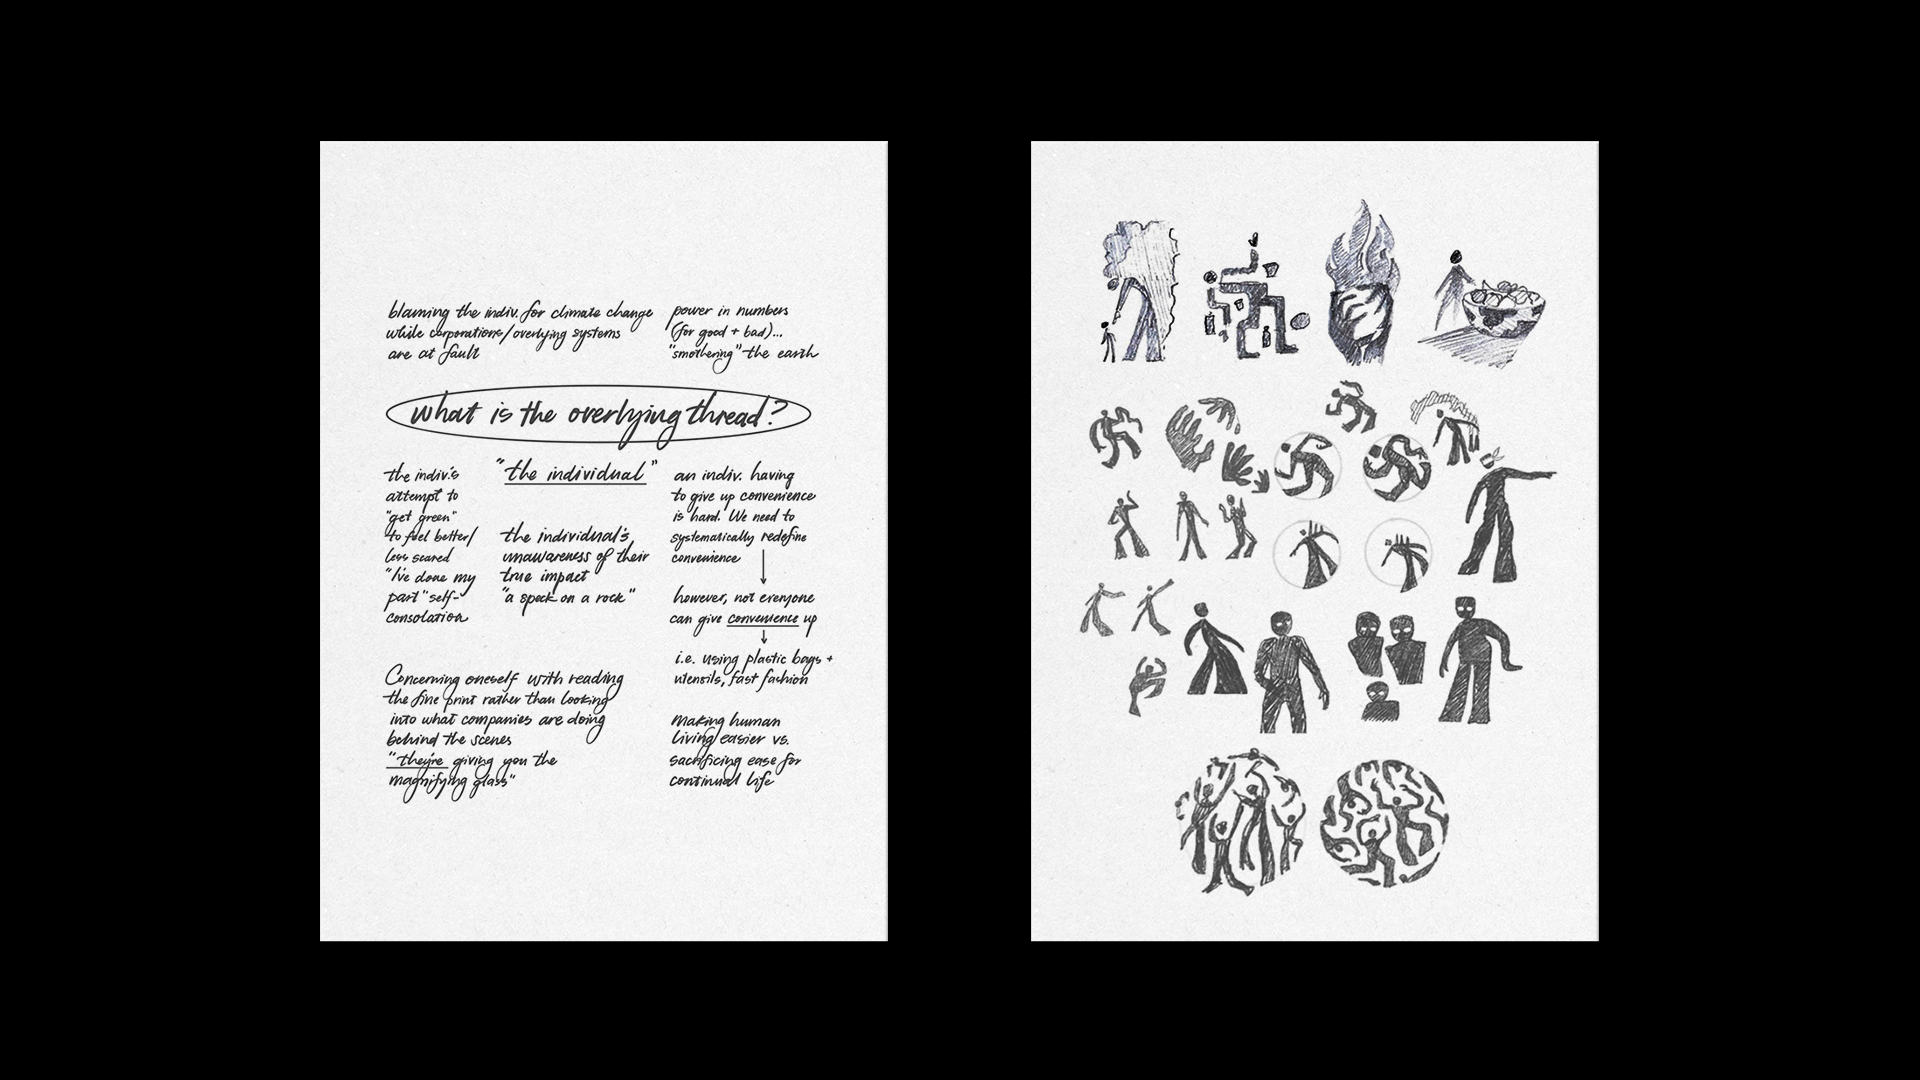 blaming the indiv. for climate change
while corporations/overlying systems
are at fault
power in numbers
(for good + bad)...
"smothering" the earth
what is the overlying thread?
the indiv.'s
attempt to
"get green"
to feel better/
less scared
"I've done my
part" self-
consolation
"the individual"
the individual's
unawareness of their
true impact
"a speck on a rock"
an indiv. having
to give up convenience
is hard. We need to
systematically redefine
convenience
however, not everyone
can give convenience up
i.e. using plastic bags +
utensils, fast fashion
Concerning oneself with reading
the fine print rather than looking
into what companies are doing
behind the scenes
"they're giving you the
magnifying glass"
making human
living easier vs.
sacrificing ease for
continual life